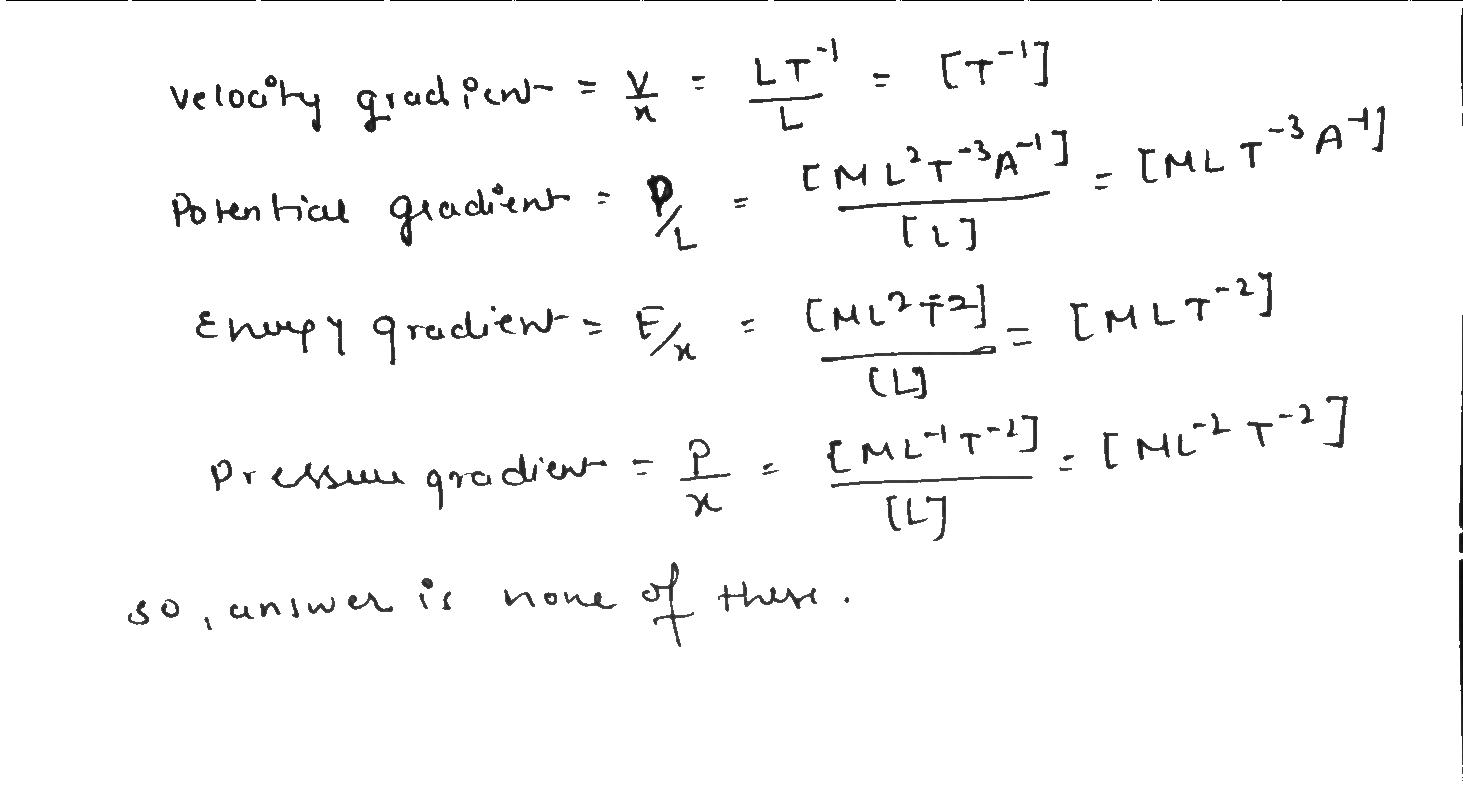 Velocity gradient = V/x = LT⁻¹/L = [T⁻¹]
Potential gradient = P/L = [ML²T⁻³A⁻¹]/[L] = [MLT⁻³A⁻¹]
Energy gradient = E/x = [ML²T⁻²]/[L] = [MLT⁻²]
Pressure gradient = P/x = [ML⁻¹T⁻²]/[L] = [ML⁻²T⁻²]
so, answer is none of these.